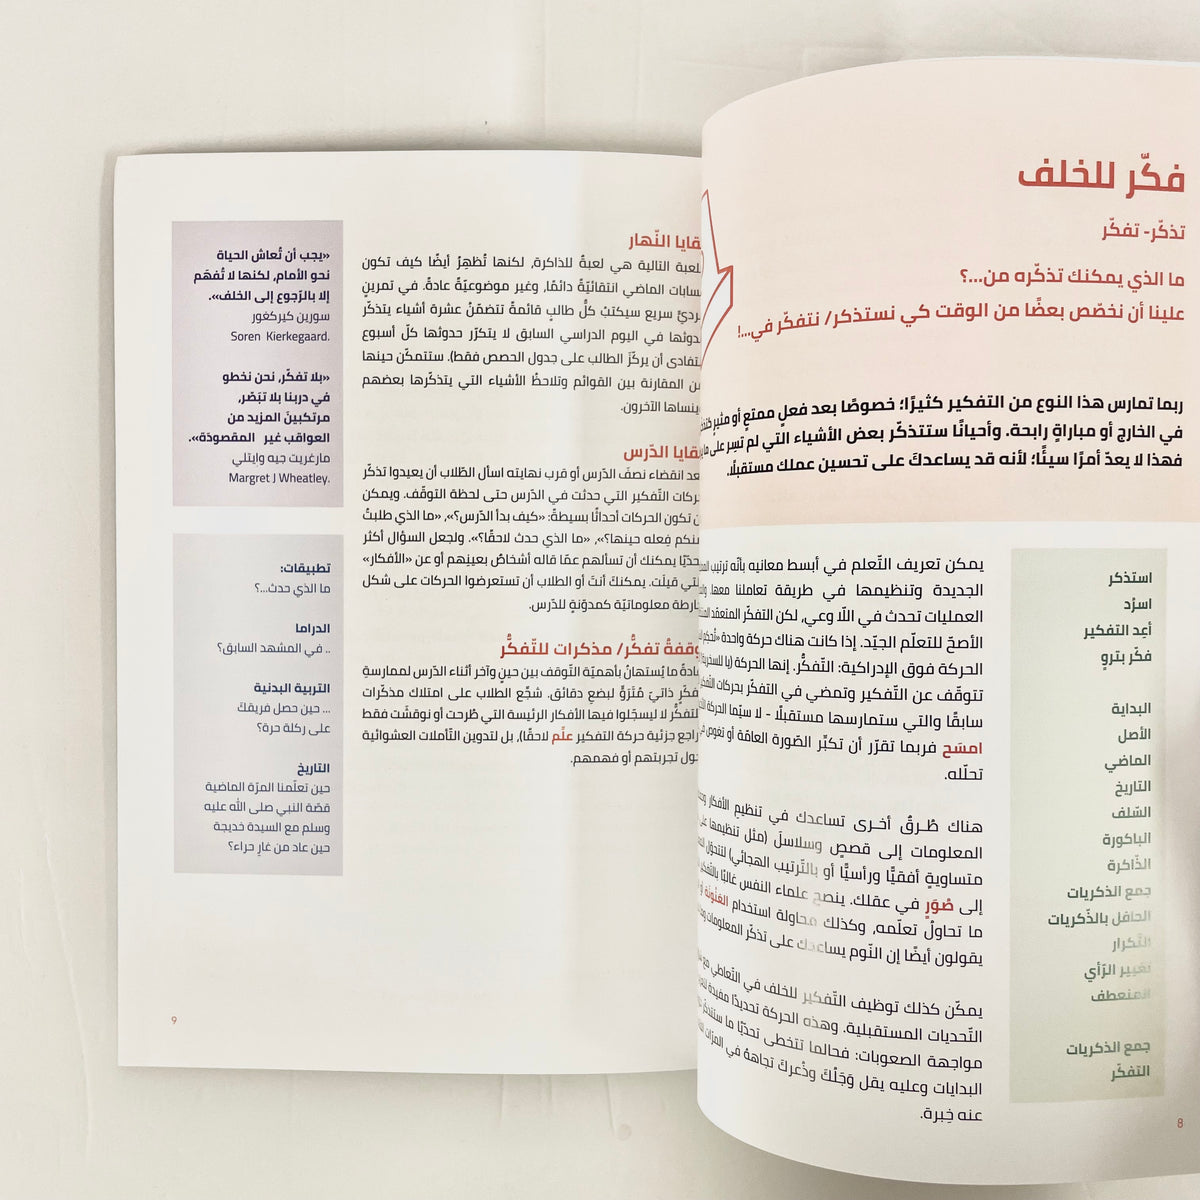 فكّر للخلف
تذكّر- تفكّر
ما الذي يمكنك تذكّره من...؟
علينا أن نخصّص بعضًا من الوقت كي نستذكر/ نتفكّر في...!
ربما تمارس هذا النوع من التفكير كثيرًا؛ خصوصًا بعد فعلٍ ممتعٍ أو مثيرٍ
في الخارج أو مباراةٍ رابحة. وأحيانًا ستتذكّر بعض الأشياء التي لم تسِر على
فهذا لا يعدّ أمرًا سيئًا؛ لأنه قد يساعدكَ على تحسين عملك مستقبلًا.
استذكر
اسرُد
أعِد التفكير
فكّر بتروٍ
البداية
الأصل
الماضي
التاريخ
السّلف
الباكورة
الذّاكرة
جمع الذكريات
الحافل بالذّكريات
التّكرار
تغيير الرّأي
المنعطف
جمع الذكريات
التفكّر
يمكن تعريف التّعلم في أبسط معانيه بأنّه ترتيب
الجديدة وتنظيمها في طريقة تعاملنا معها.
العمليات تحدث في اللّا وعي، لكن التفكّر المتعمّد
الأصحّ للتعلّم الجيّد. إذا كانت هناك حركة واحدة
الحركة فوق الإدراكية: التّفكُّر. إنها الحركة (يا للسخرية)
تتوقّف عن التّفكير وتمضي في التفكّر بحركات
سابقًا والتي ستمارسها مستقبلًا - لا سيّما الحركة
امسَح فربما تقرّر أن تكبِّر الصّورة العامّة أو تغوص
تحلّله.
هناك طُرقٌ أخرى تساعدك في تنظيم الأفكار
المعلومات إلى قصصٍ وسلاسلَ (مثل تنظيمها
متساويةٍ أفقيًّا ورأسيًّا أو بالتّرتيب الهجائي)
إلى صُوَرٍ في عقلك. ينصح علماء النفس غالبًا
ما تحاولُ تعلّمه، وكذلك محاولة استخدام العَنْونة
يقولون أيضًا إن النّوم يساعدك على تذكّر المعلومات
يمكّن كذلك توظيف التّفكير للخلف في التّعاطي مع
التّحديات المستقبلية. وهذه الحركة تحديدًا مفيدة
مواجهة الصعوبات: فحالما تتخطى تحدّيًا ما ستتذكّر
البدايات وعليه يقل وَجَلُكَ وذُعركَ تجاههُ في المرّات
عنه خِبرة.
8
النّهار
التالية هي لعبةٌ للذاكرة، لكنها تُظهِرُ أيضًا كيف تكون
الماضي انتقائيّةً دائمًا، وغير موضوعيّةً عادةً. في تمرينٍ
سريع سيكتبُ كلُّ طالبٍ قائمةً تتضمّنُ عشرة أشياء يتذكّر
في اليوم الدراسي السابق لا يتكرّر حدوثها كلّ أسبوع
أن يركّزَ الطالب على جدول الحصص فقط). ستتمكّن حينها
المقارنة بين القوائم وتلاحظُ الأشياء التي يتذكّرها بعضهم
الآخرون.
الدّرس
انقضاء نصفَ الدّرس أو قرب نهايته اسأل الطّلاب أن يعيدوا تذكّر
التّفكير التي حدثت في الدّرس حتى لحظة التوقّف. ويمكن
تكون الحركات أحداثًا بسيطةً: «كيف بدأ الدّرس؟»، «ما الذي طلبتُ
فِعله حينها؟»، «ما الذي حدث لاحقًا؟». ولجعل السؤال أكثر
يمكنك أن تسألهم عمّا قاله أشخاصُ بعينِهم أو عن «الأفكار»
قيلَت. يمكنكَ أنتَ أو الطلاب أن تستعرضوا الحركات على شكل
معلوماتيّة كمدوّنةٍ للدّرس.
تفكُّر/ مذكرات للتّفكُّر
ما يُستهانُ بأهميّة التّوقف بين حينٍ وآخر أثناء الدّرس لممارسةِ
ذاتيّ مُتَروٍّ لبضعِ دقائق. شجِّع الطلاب على امتلاك مذكّرات
لا ليسجّلوا فيها الأفكار الرئيسة التي طُرحت أو نوقشَت فقط
جزئية حركة التفكير علّم لاحقًا)، بل لتدوين التّأملات العشوائية
تجربتهم أو فهمهم.
«يجب أن تُعاش الحياة
نحو الأمام، لكنها لا تُفهَم
إلا بالرّجوع إلى الخلف».
سورين كيركغور
Soren Kierkegaard.
«بلا تفكّر، نحن نخطو
في دربنا بلا تبَصّر،
مرتكبينَ المزيد من
العواقب غير المقصودة».
مارغريت جيه وايتلي
Margret J Wheatley.
تطبيقات:
ما الذي حدث...؟
الدراما
.. في المشهد السابق؟
التربية البدنية
... حين حصل فريقكَ
على ركلة حرة؟
التاريخ
حين تعلّمنا المرّة الماضية
قصّة النبي صلى الله عليه
وسلم مع السيدة خديجة
حين عاد من غارِ حراء؟
9